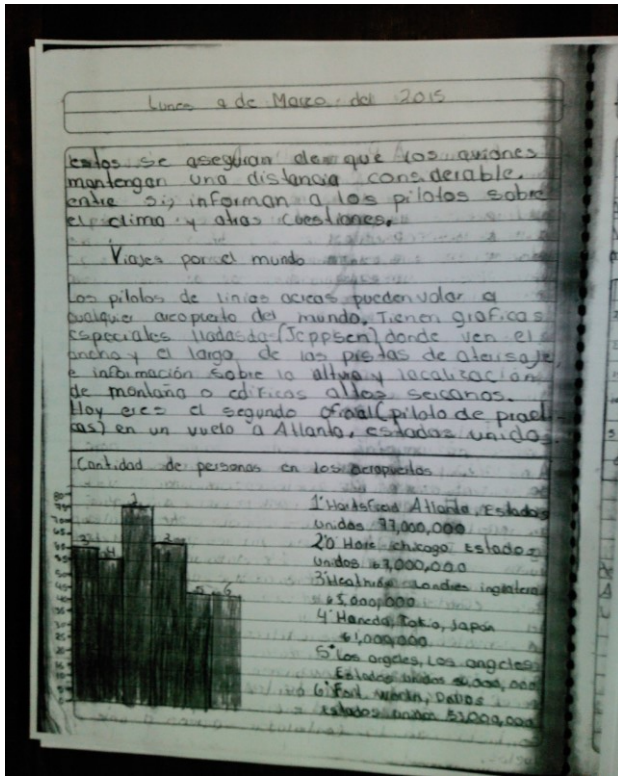 Lunes 9 de Marzo del 2015
estos se aseguran de que los aviones
mantengan una distancia considerable.
entre si, informan a los pilotos sobre
el clima y otras cuestiones.
Viajes por el mundo
Los pilotos de linias aereas pueden volar a
cualquier aeropuerto del mundo. Tienen graficas
especiales (Jeppsen) donde ven el
ancho y el largo de las pistas de aterisaje,
e información sobre la altura y localización
de montaña o edificos altos sercanos.
Hoy eres el segundo (piloto de pract-
cas) en un vuelo a Atlanta, estados unidos.
Cantidad de personas en los aeropuertos
80
75
70
65
60
50
45
40
35
30
25
20
15
10
5
3
4
1
2
5
6
1° Atlanta, Estados
unidos 77,000,000
2° O Hare chicago Estados
unidos 67,000,000
3° Londres inglatera
65,000,000
4° Haneda, Tokio, Japón
61,000,000
5° Los angeles, Los angeles
Estados unidos 50,000,000
6° Fort worth, Dallas
estados unidos 53,000,000